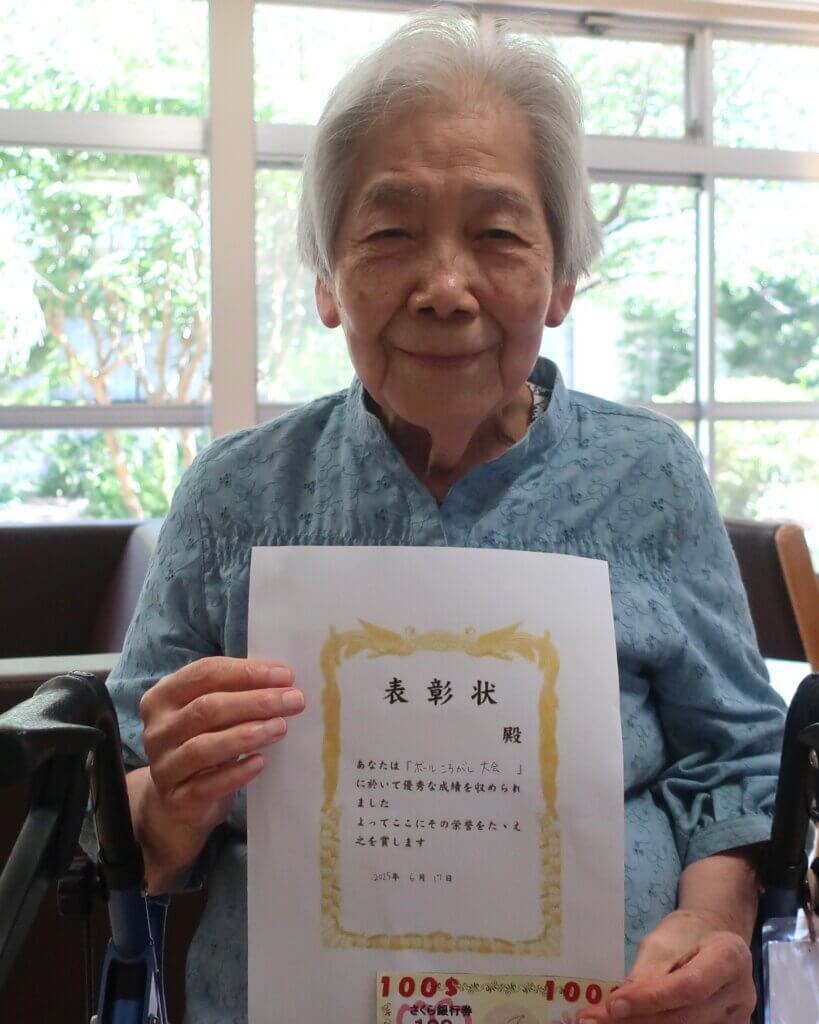 表彰状
殿
あなたは「ボールころがし大会 」
に於いて優秀な成績を収められ
ました
よってここにその栄誉をたゝえ
之を賞します
2025年 6月 17日
100$ 100
さくら銀行券
100